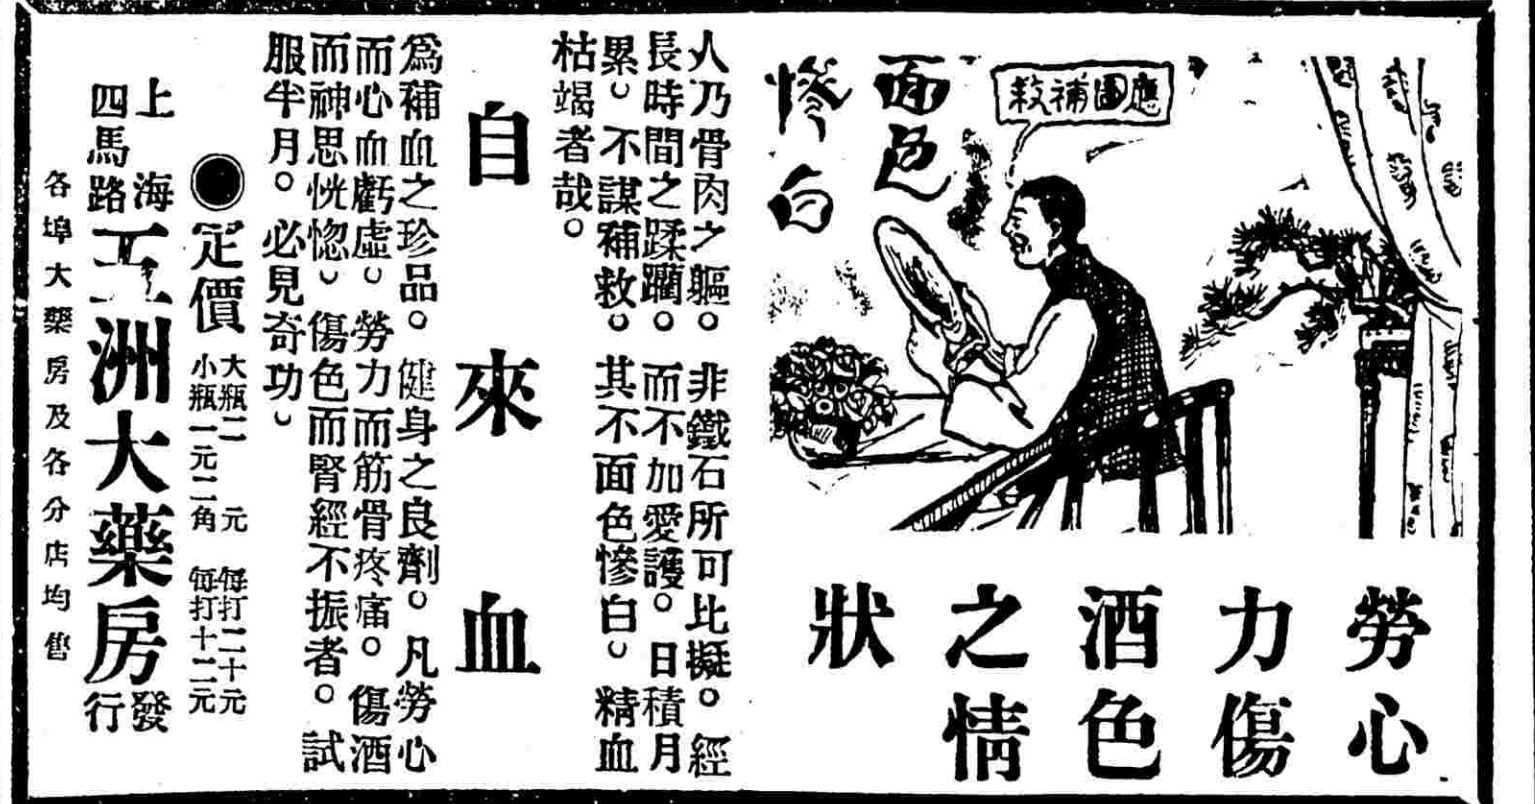 勞心
力傷
酒色
之情
狀
應圖補救
面色
慘白
人乃骨肉之軀。非鐵石所可比擬。經
長時間之蹂躪。而不加愛護。日積月
累。不謀補救。其不面色慘白。精血
枯竭者哉。
自來血
爲補血之珍品。健身之良劑。凡勞心
而心血虧虛。勞力而筋骨疼痛。傷酒
而神思恍惚。傷色而腎經不振者。試
服半月。必見奇功。
定價
大瓶二元 每打二十元
小瓶一元二角 每打十二元
上海
四馬路
五洲大藥房
發行
各埠大藥房及各分店均售